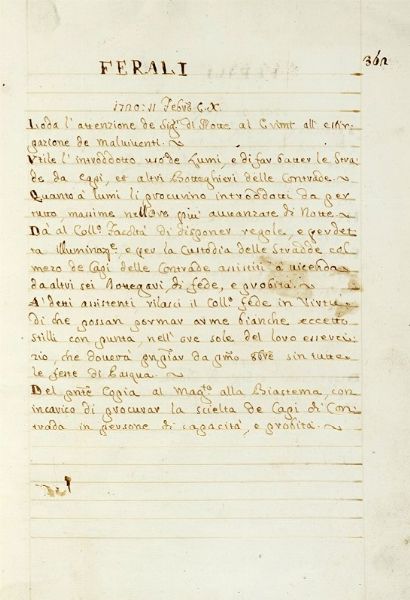 362
FERALI
1720: 11 Febrº C.X.
Loda l'attenzione de Sigri di Notte al Crimt all' estir,
pazione de malviventi.
Utile l'introddotto uso de Lumi, e di far batter le Stra,
de da Capi, et altri Botteghieri delle Contrade.
Quanto à lumi si procurino introddotti da per
tutto, massime nell'ore più avvanzate di Notte.
Dà al Collº facoltà di disponer regole, e per det,
ta Illuminaze e per la Custodia delle Stradde col
mezo de Capi delle Contrade assistiti à vicenda
da altri sei Bottegari, di fede, e probità.
A' detti assistenti rilasci il Collº fede in Virtù
di che possan portar arme bianche eccetto
Stilli con punta, nell' ore sole del loro eserci,
zio, che doverà principiar da pmo 8bre sin tutte
le feste di Pasqua.
Del pnte Copia al Magto alla Biastema, con
incarico di procurar la scielta de Capi di Con,
trada in persone di capacità, e probità.